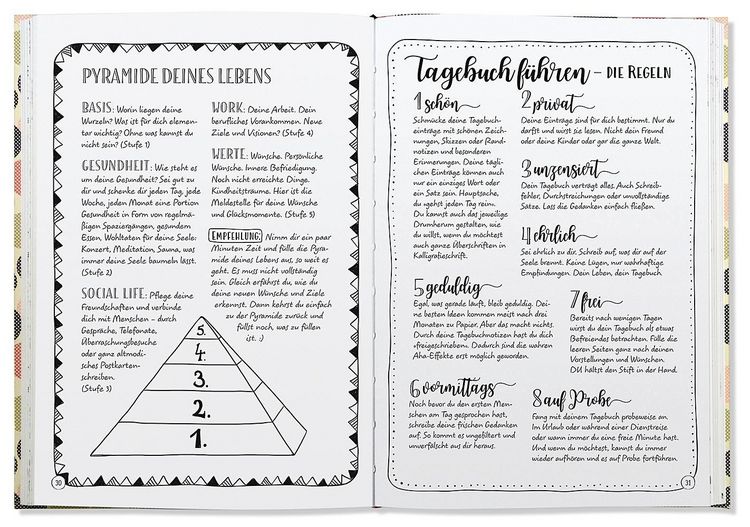 PYRAMIDE DEINES LEBENS
BASIS: Worin liegen deine
Wurzeln? Was ist für dich elemen-
tar wichtig? Ohne was kannst du
nicht sein? (Stufe 1)
GESUNDHEIT: Wie steht es
um deine Gesundheit? Sei gut zu
dir und schenke dir jeden Tag, jede
Woche, jeden Monat eine Portion
Gesundheit in Form von regelmä-
ßigen Spaziergängen, gesundem
Essen, Wohltaten für deine Seele:
Konzert, Meditation, Sauna, was
immer deine Seele baumeln lässt.
(Stufe 2)
SOCIAL LIFE: Pflege deine
Freundschaften und verbinde
dich mit Menschen – durch
Gespräche, Telefonate,
Überraschungsbesuche
oder ganz altmodi-
sches Postkarten-
schreiben.
(Stufe 3)
WORK: Deine Arbeit. Dein
berufliches Vorankommen. Neue
Ziele und Visionen? (Stufe 4)
WERTE: Wünsche. Persönliche
Wünsche. Innere Befriedigung.
Noch nicht erreichte Dinge.
Kindheitsträume. Hier ist die
Meldestelle für deine Wünsche
und Glücksmomente. (Stufe 5)
EMPFEHLUNG: Nimm dir ein paar
Minuten Zeit und fülle die Pyra-
mide deines Lebens aus, so weit es
geht. Es muss nicht vollständig
sein. Gleich erfährst du, wie du
deine neuen Wünsche und Ziele
erkennst. Dann kehrst du einfach
zu der Pyramide zurück und
füllst noch, was zu füllen
ist. :)
5.
4.
3.
2.
1.
30
Tagebuch führen – DIE REGELN
1 schön
Schmücke deine Tagebuch-
einträge mit schönen Zeich-
nungen, Skizzen oder Rand-
notizen und besonderen
Erinnerungen. Deine tägli-
chen Einträge können auch
nur ein einziges Wort oder
ein Satz sein. Hauptsache,
du »gehst jeden Tag rein«.
Du kannst auch das jeweilige
Drumherum gestalten, wie
du willst, wenn du möchtest
auch ganze Überschriften in
Kalligrafieschrift.
2 privat
Deine Einträge sind für dich bestimmt. Nur du
darfst und wirst sie lesen. Nicht dein Freund
oder deine Kinder oder gar die ganze Welt.
3 unzensiert
Dein Tagebuch verträgt alles. Auch Schreib-
fehler, Durchstreichungen oder unvollständige
Sätze. Lass die Gedanken einfach fließen.
4 ehrlich
Sei ehrlich zu dir. Schreib auf, was dir auf der
Seele brennt. Keine Lügen, nur wahrhaftige
Empfindungen. Dein Leben, dein Tagebuch.
5 geduldig
Egal, was gerade läuft, bleib geduldig. Dei-
ne besten Ideen kommen meist nach drei
Monaten zu Papier. Aber das macht nichts.
Durch deine Tagebuchnotizen hast du dich
»freigeschrieben«. Dadurch sind die wahren
Aha-Effekte erst möglich geworden.
6 vormittags
Noch bevor du den ersten Men-
schen am Tag gesprochen hast,
schreibe deine frischen Gedanken
auf. So kommt es ungefiltert und
unverfälscht aus dir heraus.
7 frei
Bereits nach wenigen Tagen
wirst du dein Tagebuch als etwas
Befreiendes betrachten. Fülle die
leeren Seiten ganz nach deinen
Vorstellungen und Wünschen.
DU hältst den Stift in der Hand.
8 auf Probe
Fang mit deinem Tagebuch probeweise an.
Im Urlaub oder während einer Dienstreise
oder wann immer du eine freie Minute hast.
Und wenn du möchtest, kannst du immer
wieder aufhören und es auf Probe fortführen.
31